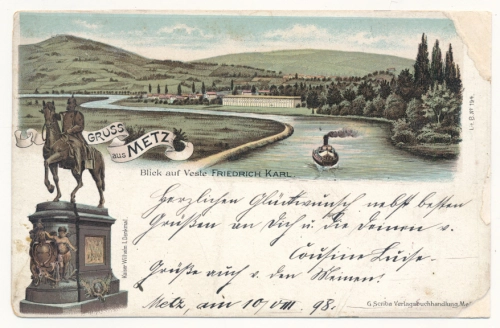 GRUSS
aus METZ
Blick auf Veste FRIEDRICH KARL
Kaiser Wilhelm I. Denkmal.
Herzlichen Glückwunsch nebst besten
Grüßen an Dich u. die Deinen v.
Cousine Luise.
Grüße auch v. den Meinen.
Metz, am 10/VIII. 98.
G. Scriba Verlagsbuchhandlung, Me